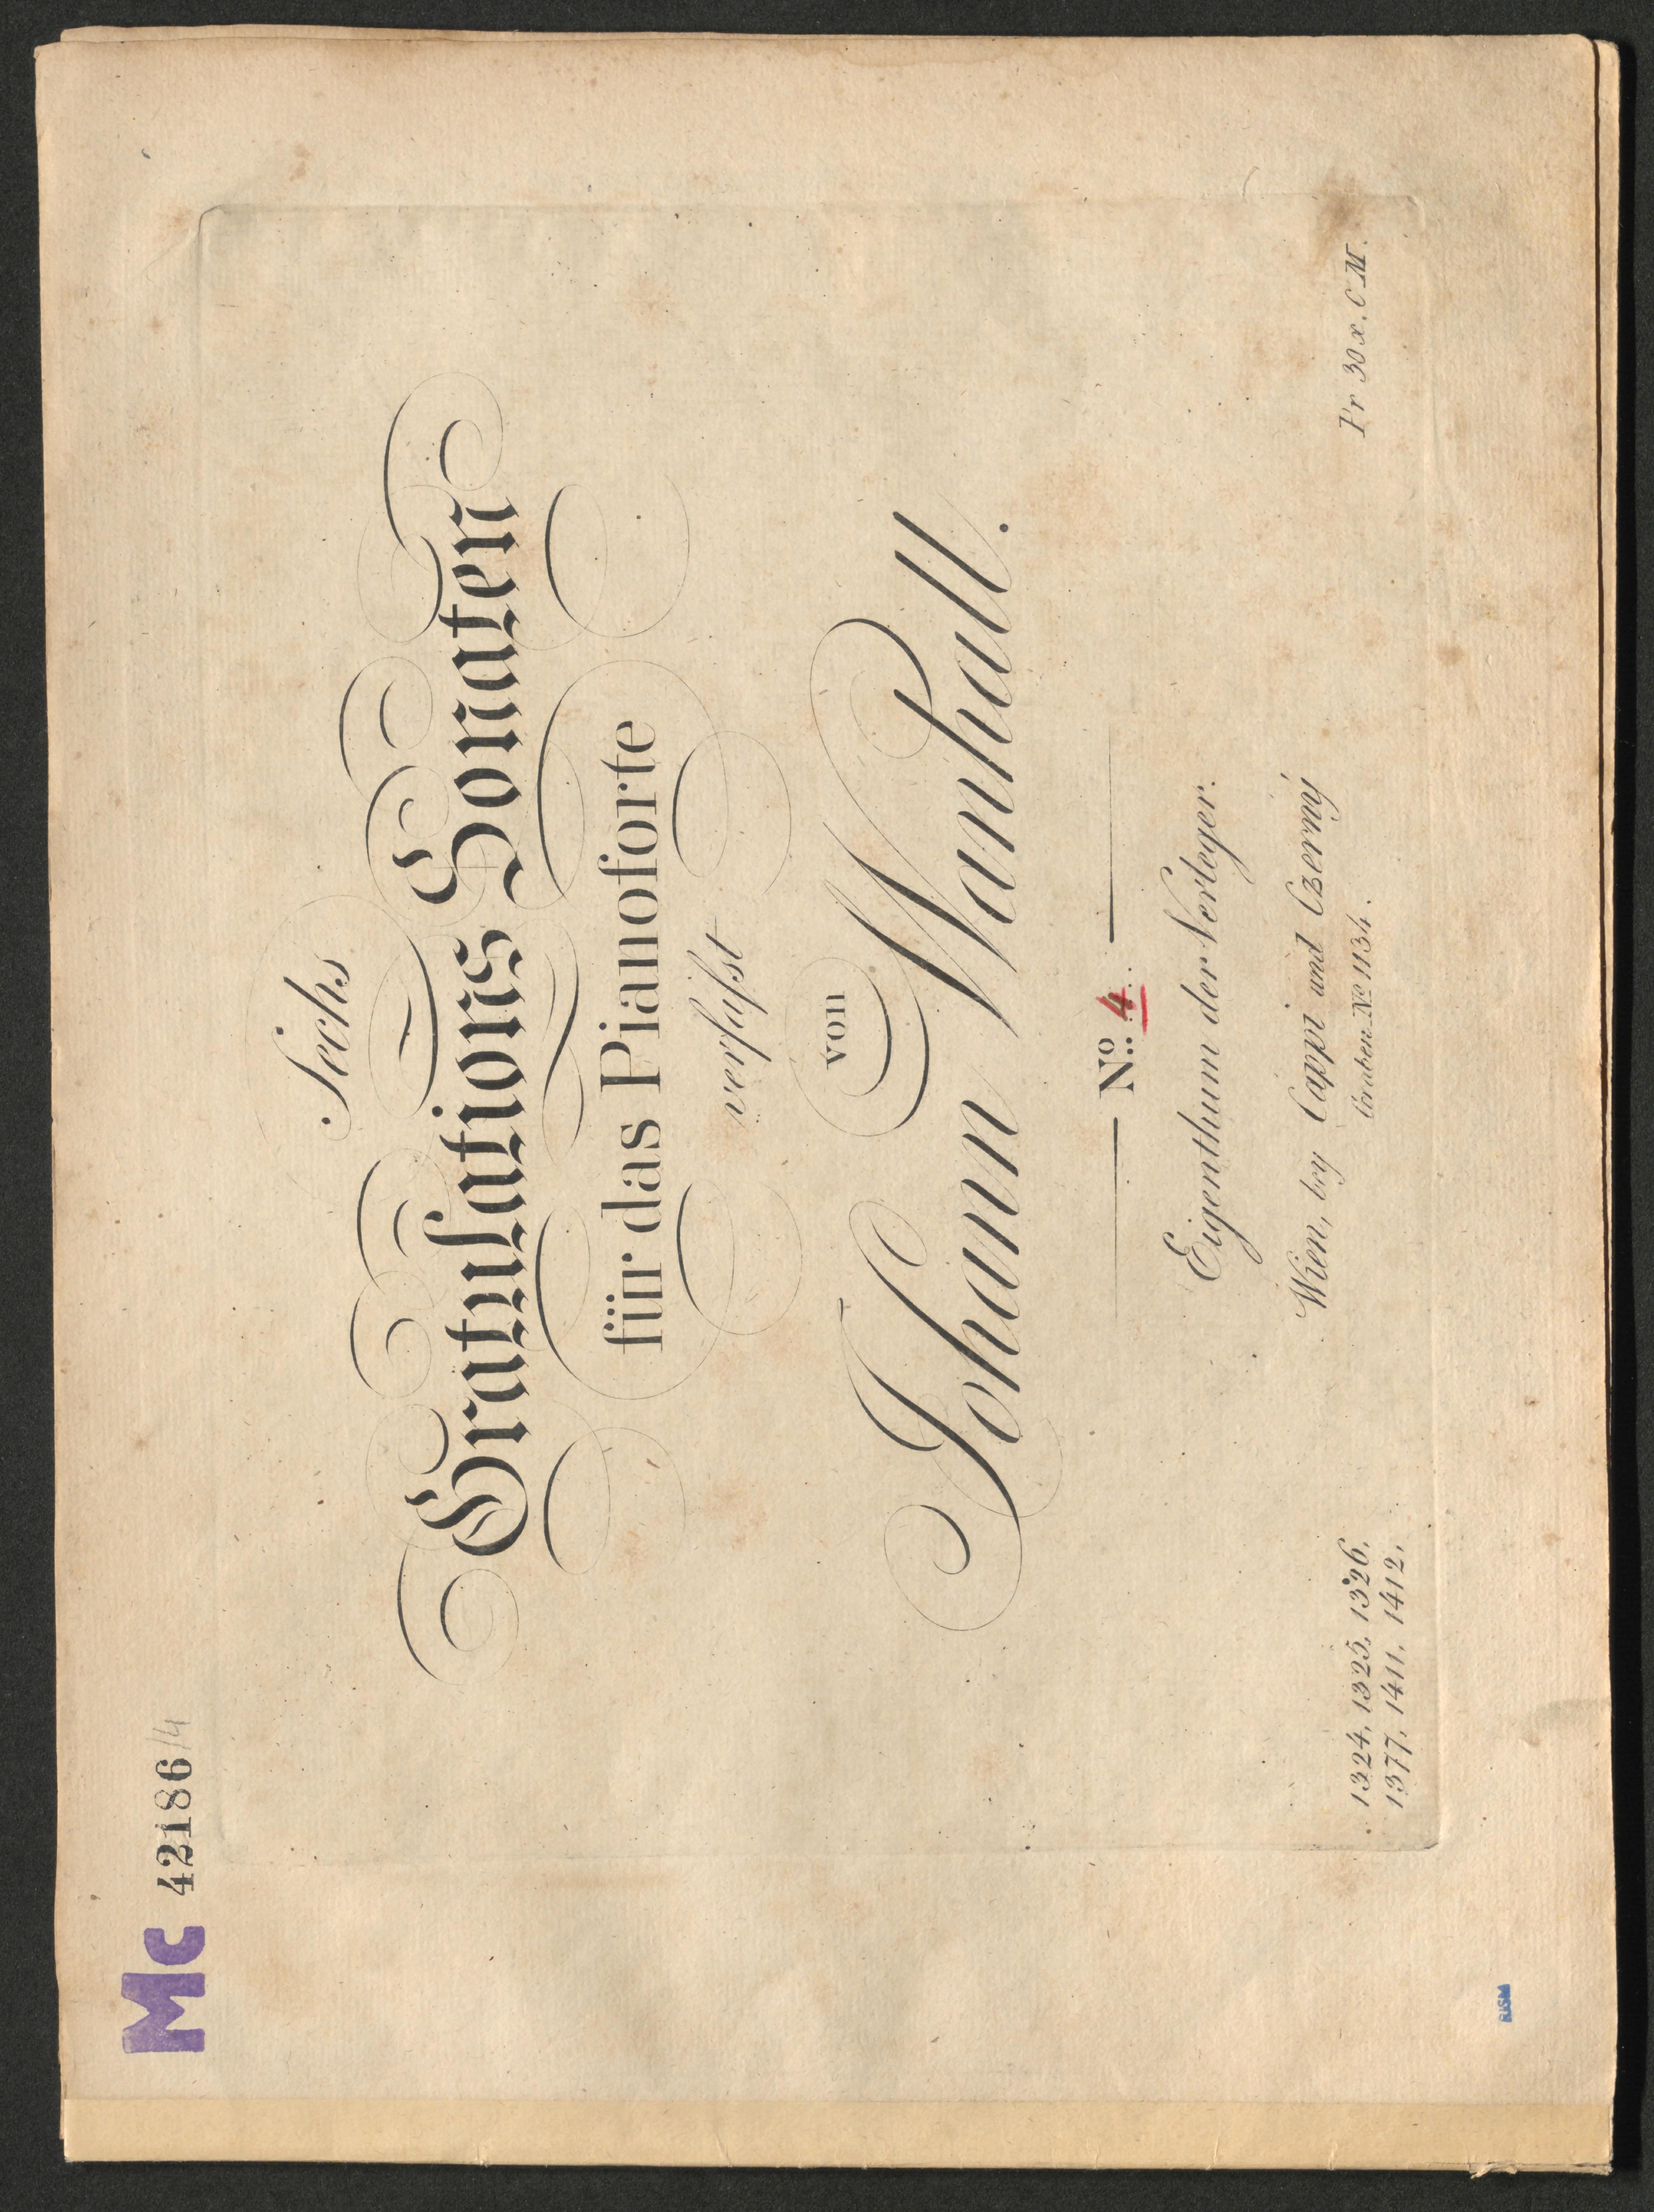 Mc 42186/4
Sechs
Gratulations Sonaten
für das Pianoforte
verfasst
von
Johann Wanhall.
No. 4.
Eigenthum der Verleger.
Wien, bey Cappi und Czerný
Graben No 1134.
1324, 1325, 1326.
1377, 1411, 1412.
Pr 30 x. C M.
RISM